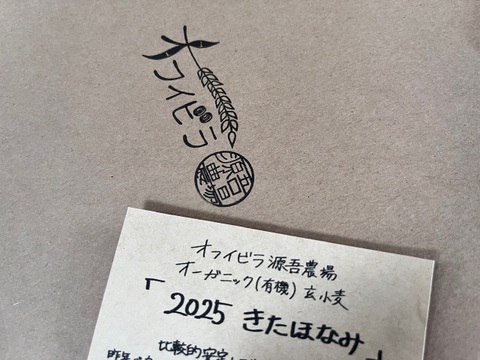 オフイビラ
源吾農場
オフイビラ源吾農場
オーガニック(有機)玄小麦
「2025 きたほなみ」
比較的安定して
昨年